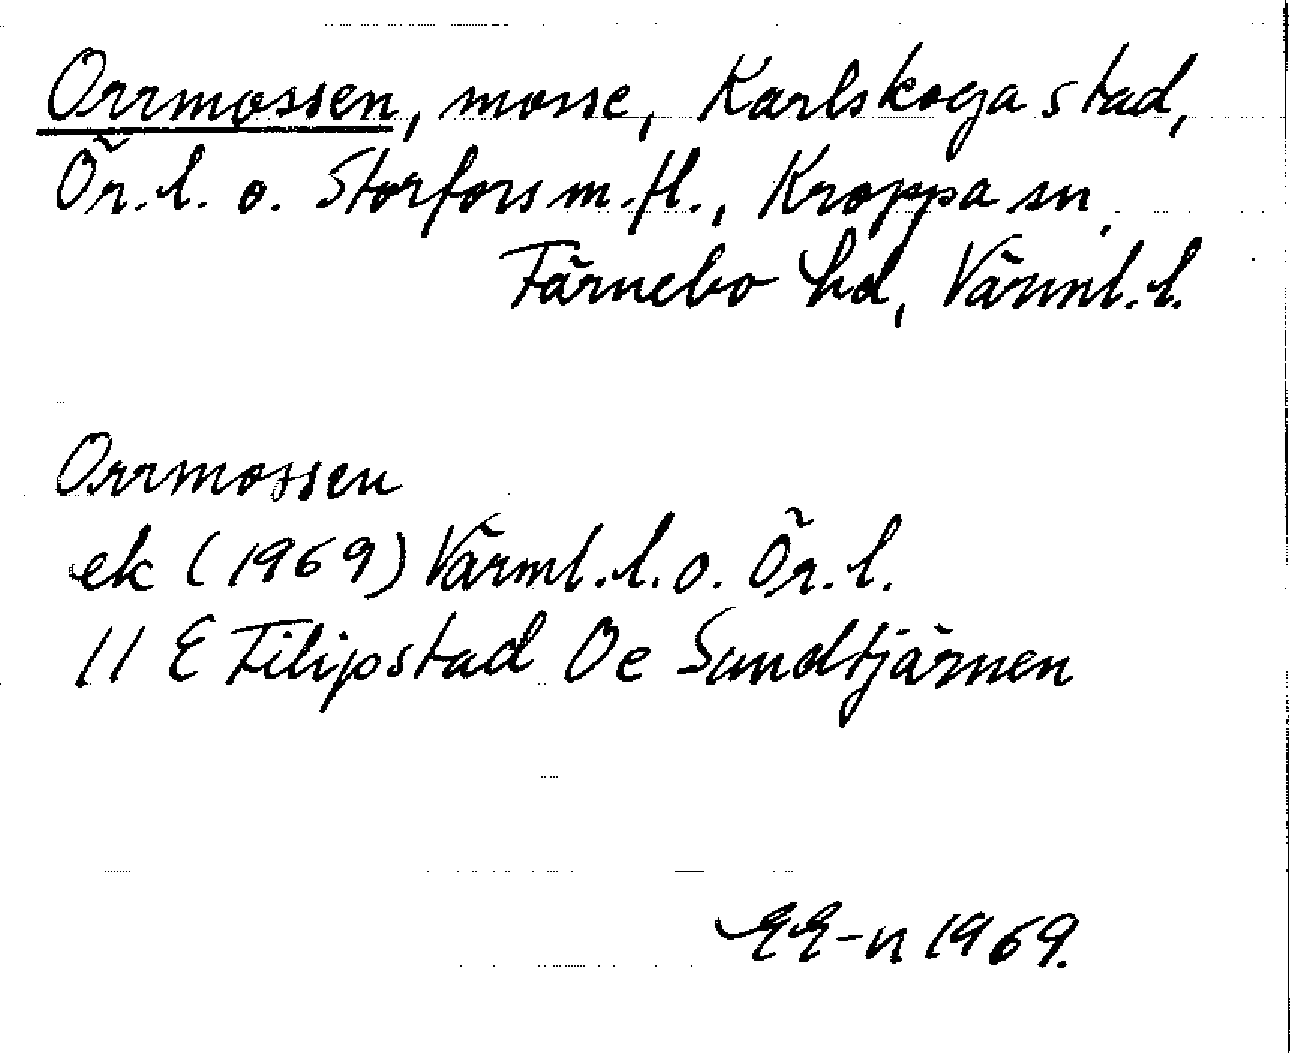 Orrmossen, mosse, Karlskoga stad,
Ör.l. o. Storfors m.fl., Kroppa sn,
Färnebo hd, Värml.l.
Orrmossen
ek (1969) Värml.l. o. Ör.l.
11 E Filipstad Oe Sundtjärnen
EE-n 1969.